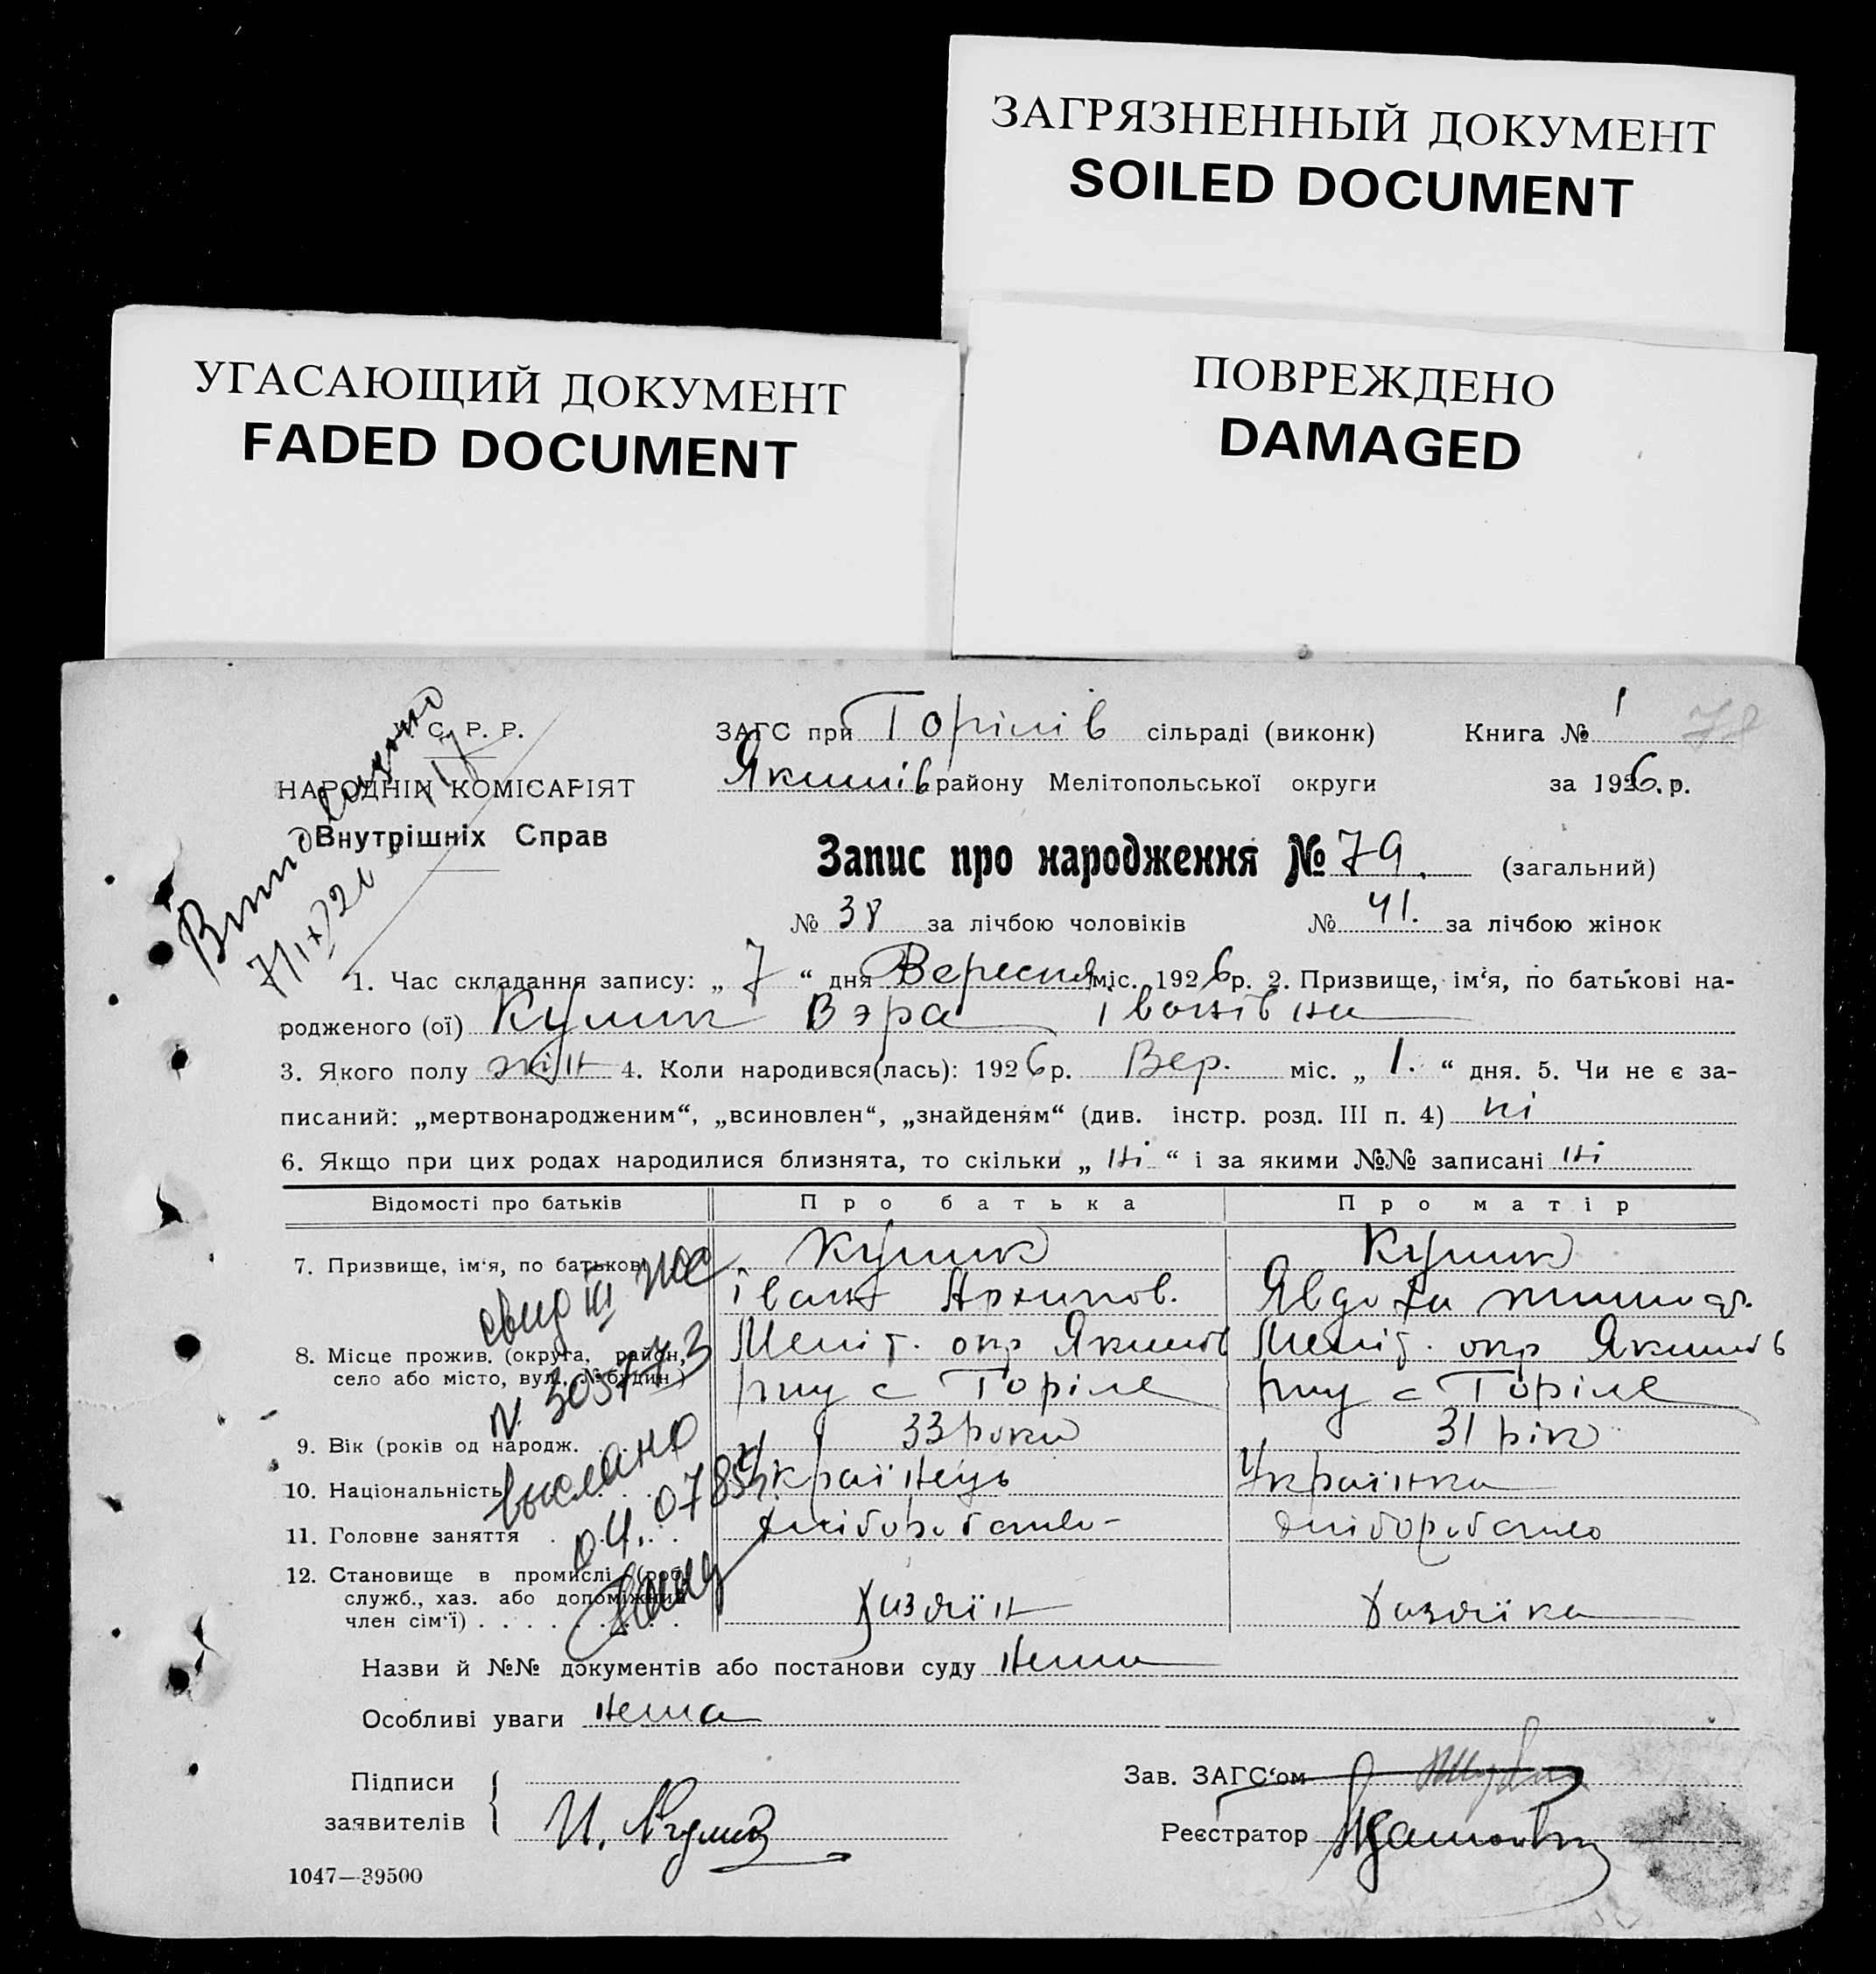 ЗАГРЯЗНЕННЫЙ ДОКУМЕНТ
SOILED DOCUMENT
УГАСАЮЩИЙ ДОКУМЕНТ
FADED DOCUMENT
ПОВРЕЖДЕНО
DAMAGED
С. Р. Р.
НАРОДНІЙ КОМІСАРІЯТ
Внутрішніх Справ
ЗАГС при Горілів сільраді (виконк) Книга № 1 78
Якимів району Мелітопольської округи за 1926. р.
Запис про народження № 79. (загальний)
№ 38 за лічбою чоловіків № 41. за лічбою жінок
1. Час складання запису: „ 7 “ дня Вересня міс. 1926 р. 2. Призвище, ім‘я, по батькові на-
родженого (ої) Кулик Вэра іванівна
3. Якого полу жін 4. Коли народився(лась): 1926 р. Вер. міс. „ 1. “ дня. 5. Чи не є за-
писаний: „мертвонародженим“, „всиновлен“, „знайденям“ (див. інстр. розд. III п. 4) ні
6. Якщо при цих родах народилися близнята, то скільки „ ні “ і за якими №№ записані ні
Відомості про батьків Про батька Про матір
7. Призвище, ім‘я, по батькові Кулик Кулик
іван Архипов. Явдоха
8. Місце прожив. (округа, район, Меліт. окр Якимів Меліт. окр Якимів
село або місто, вул., № будин.) рну с Горіле рну с Горіле
9. Вік (років од народж. 33 роки 31 рік
10. Національність Українець Українка
11. Головне заняття хліборобство- хліборобство
12. Становище в промислі (роб.
служб., хаз. або допоміжний
член сім‘ї) . . . . . . . . . Хазяїн Хазяїка
Назви й №№ документів або постанови суду нема
Особливі уваги нема
Підписи
заявителів И. Кулик
Зав. ЗАГС‘ом
Реєстратор
1047—39500
7/IX 26
свид III
N 305773
выслано
04.0785